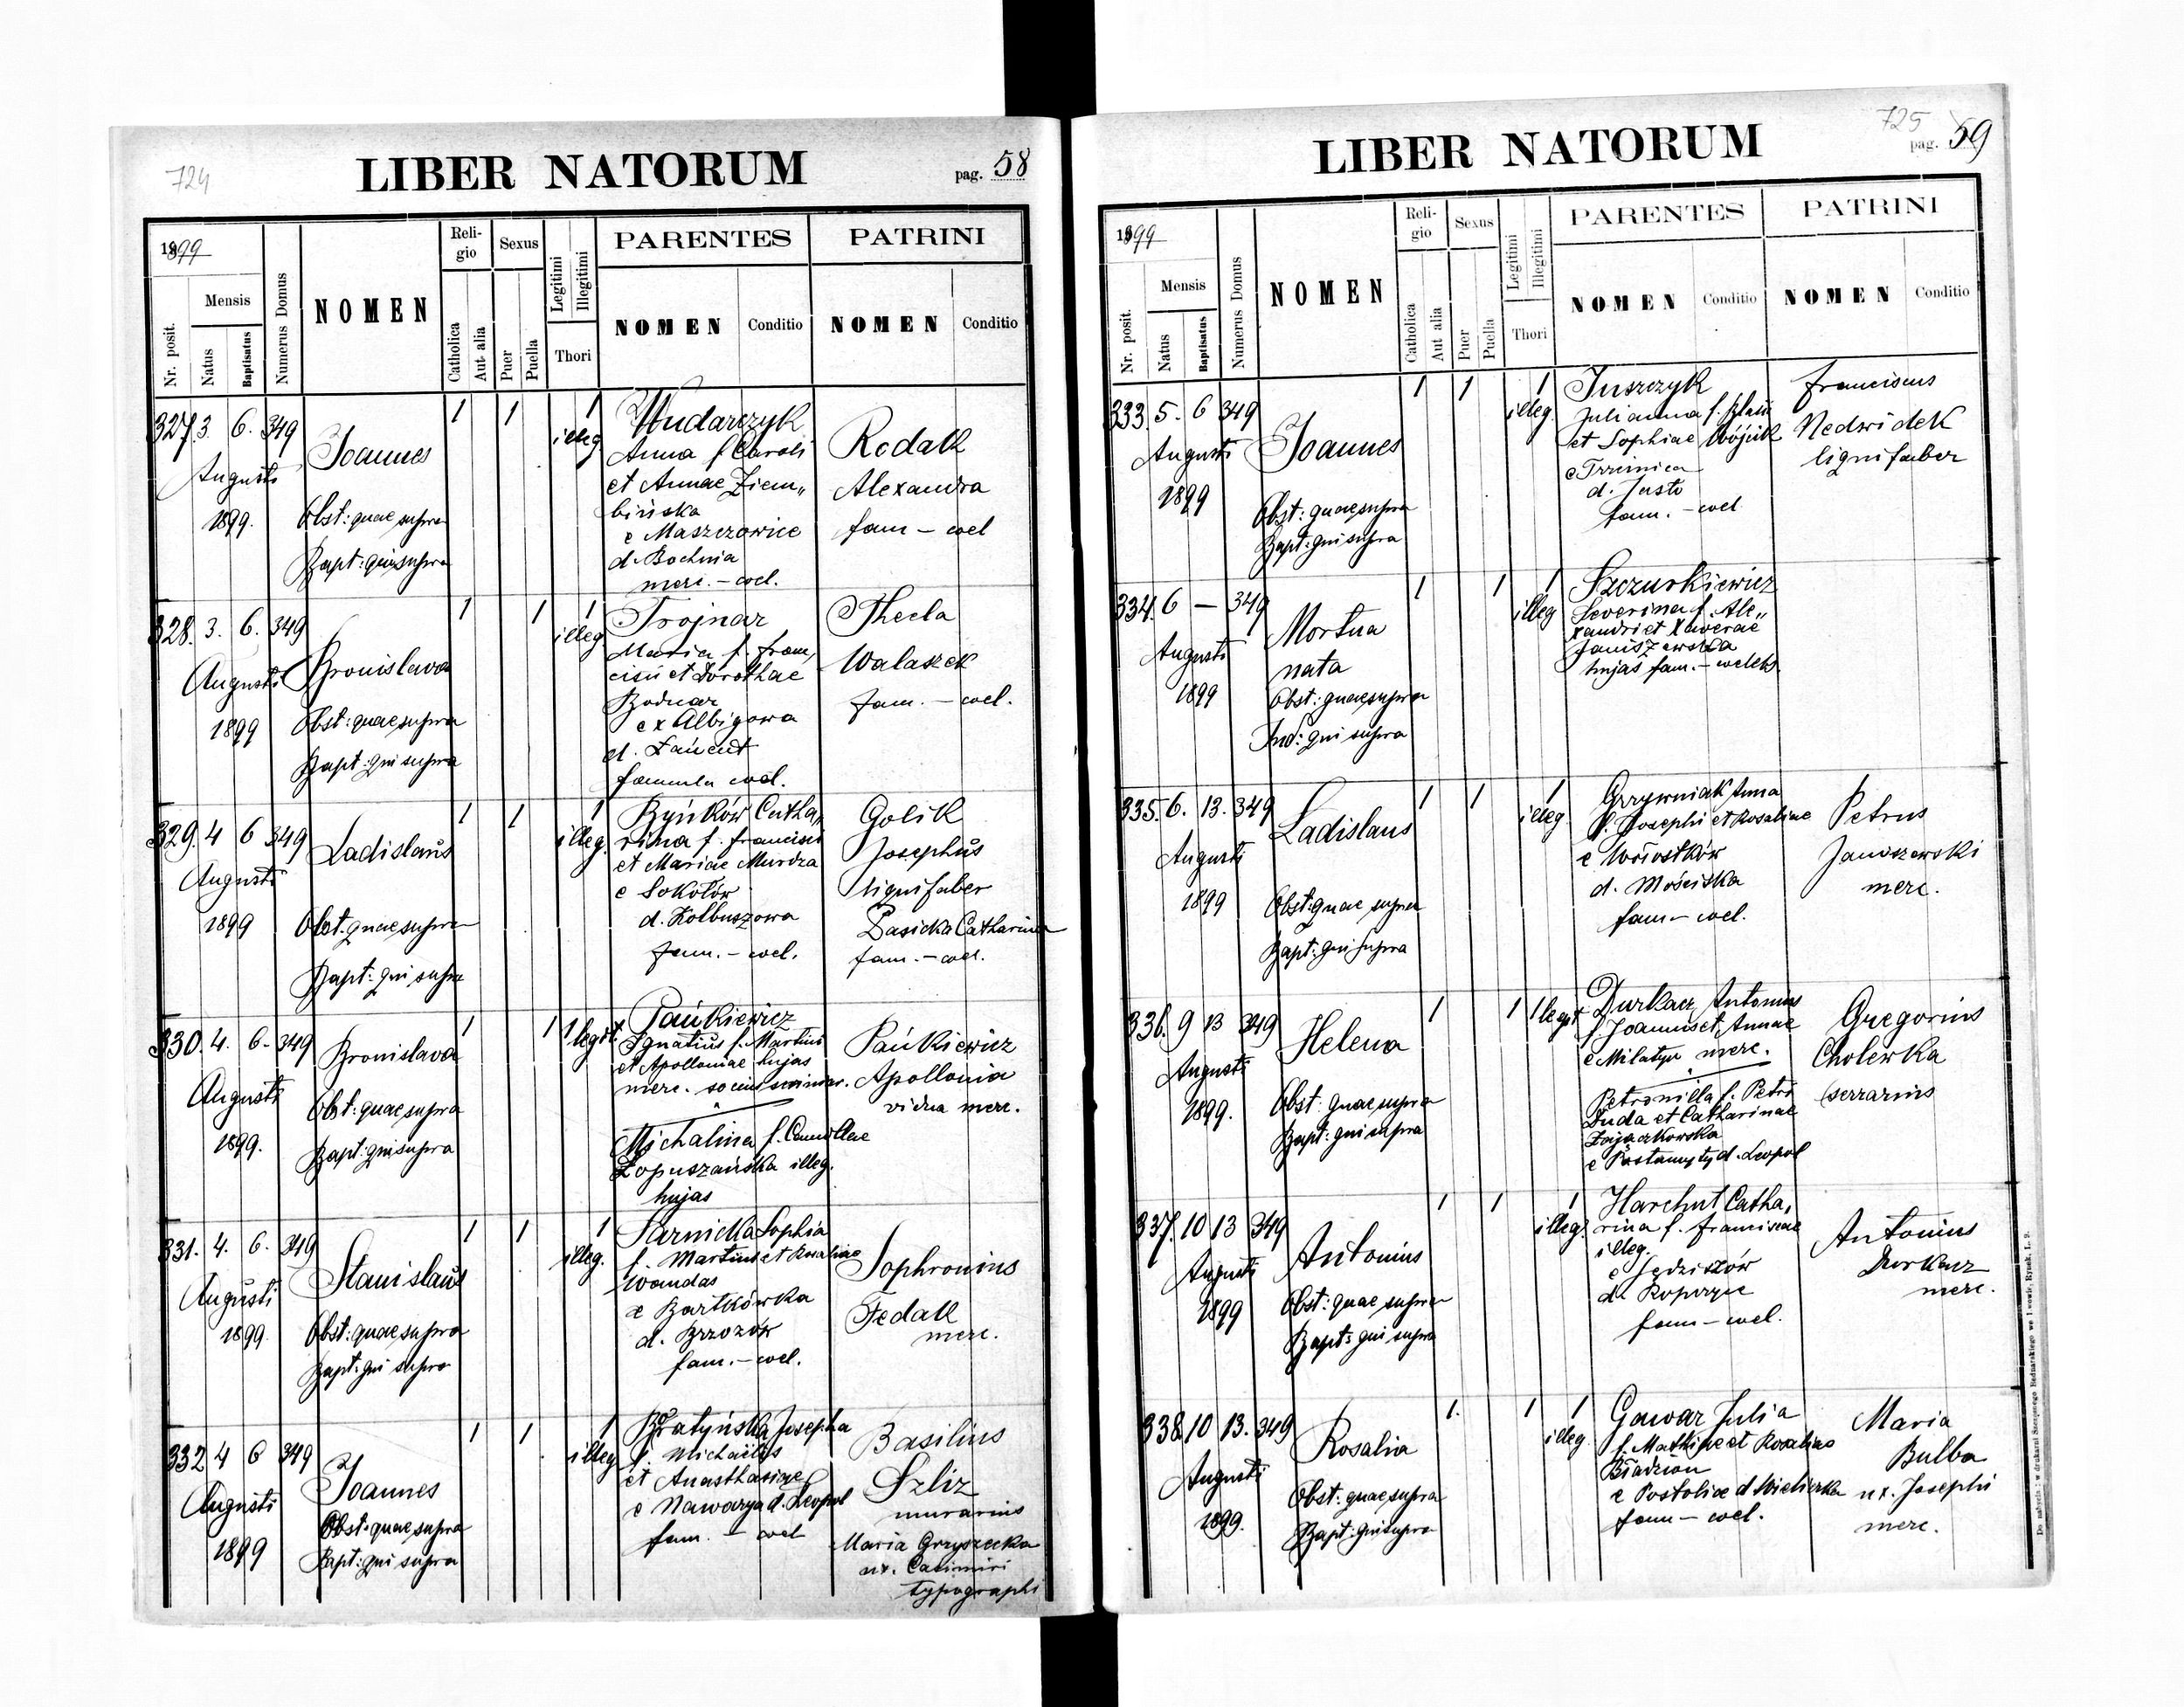 724
LIBER NATORUM
pag. 58
1899
Nr. posit.
Mensis
Natus
Baptisatus
Numerus Domus
NOMEN
Religio
Catholica
Aut alia
Sexus
Puer
Puella
Legitimi
Illegitimi
Thori
PARENTES
NOMEN
Conditio
PATRINI
NOMEN
Conditio
327. 3. 6. 349
Augusti
1899.
Joannes
Obst: quae supra
Bapt: qui supra
1 1 1
illeg.
Wudarczyk
Anna f. Caroli
et Annae Ziem„
bińska
e Maszczowice
d. Bochnia
merc. – coel.
Rodak
Alexandra
fam – coel
328. 3. 6. 349
Augusti
1899
Bronislava
Obst: quae supra
Bapt: qui supra
1 1 1
illeg
Trojnar
Maria f. Fran„
cisci et Dorothae
Bodnar
ex Albigowa
d. Łańcut
famula coel.
Thecla
Walaszek
fam. – coel.
329. 4 6 349
Augusti
1899
Ladislaus
Obst: quae supra
Bapt: qui supra
1 1 1
illeg.
Byńków Catha„
rina f. Francisci
et Mariae Murdza
e Sokołów
d. Kolbuszowa
fam. – coel.
Golik
Josephus
lignifaber
Łasicka Catharina
fam. – coel.
330. 4. 6. 349
Augusti
1899.
Bronislava
Obst: quae supra
Bapt: qui supra
1 1 1 legit.
Pańkiewicz
Ignatius f. Martini
et Apolloniae hujas
merc.
Michalina f. Camillae
Łopuszańska illeg.
hujas
Pańkiewicz
Apollonia
vidua merc.
331. 4. 6. 349
Augusti
1899.
Stanislaus
Obst: quae supra
Bapt: qui supra
1 1 1
illeg.
Sarnicka Sophia
f. Martini et Rosaliae
Wandas
e Bartkówka
d. Brzozów
fam. – coel.
Sophronius
Fedak
merc.
332 4 6 349
Augusti
1899
Joannes
Obst: quae supra
Bapt: qui supra
1 1 1
illeg
Bratyńska Josepha
f. Michaëlis
et Anasthasiae
e Nawarya d. Leopol
fam. – coel
Basilius
Szliz
murarius
Maria Gryszecka
ux. Casimiri
typographi
725
LIBER NATORUM
pag. 59
1899
Nr. posit.
Mensis
Natus
Baptisatus
Numerus Domus
NOMEN
Religio
Catholica
Aut alia
Sexus
Puer
Puella
Legitimi
Illegitimi
Thori
PARENTES
NOMEN
Conditio
PATRINI
NOMEN
Conditio
333. 5. 6 349
Augusti
1899
Joannes
Obst: quae supra
Bapt: qui supra
1 1 1
illeg.
Juszczyk
Julianna f. Blasii
et Sophiae Wójcik
e Trzcinica
d. Jasło
fam. – coel
Franciscus
Nedwidek
lignifaber
334. 6 – 349
Augusti
1899
Mortua
nata
Obst: quae supra
Ind: qui supra
1 1 1
illeg
Szczurkiewicz
Severina f. Ale„
xandri et Xaverae
Janiszewska
hujas fam. – coelebs
335. 6. 13. 349
Augusti
1899
Ladislaus
Obst: quae supra
Bapt: qui supra
1 1 1
illeg.
Grzywniak Anna
f. Josephi et Rosaliae
e Wołostków
d. Mościska
fam – coel.
Petrus
Janiszewski
merc.
336. 9 13 349
Augusti
1899.
Helena
Obst: quae supra
Bapt: qui supra
1 1 1 legit
Durkacz Antonius
f. Joannis et Annae
e Milatyn merc.
Petronilla f. Petri
Duda et Catharinae
Zajączkowska
d. Leopol
Gregorius
Cholewka
serrarius
337. 10 13 349
Augusti
1899
Antonius
Obst: quae supra
Bapt: qui supra
1 1 1
illeg.
Harchut Catha„
rina f. Franciscae
illeg.
e Sędziszów
d. Ropczyce
fam – coel.
Antonius
Durkacz
merc.
338. 10 13. 349
Augusti
1899.
Rosalia
Obst: quae supra
Bapt: qui supra
1. 1 1
illeg
Gawar Julia
f. Mathiae et Rosaliae
e d Wieliczka
fam – coel.
Maria
Bulba
ux. Josephi
merc.